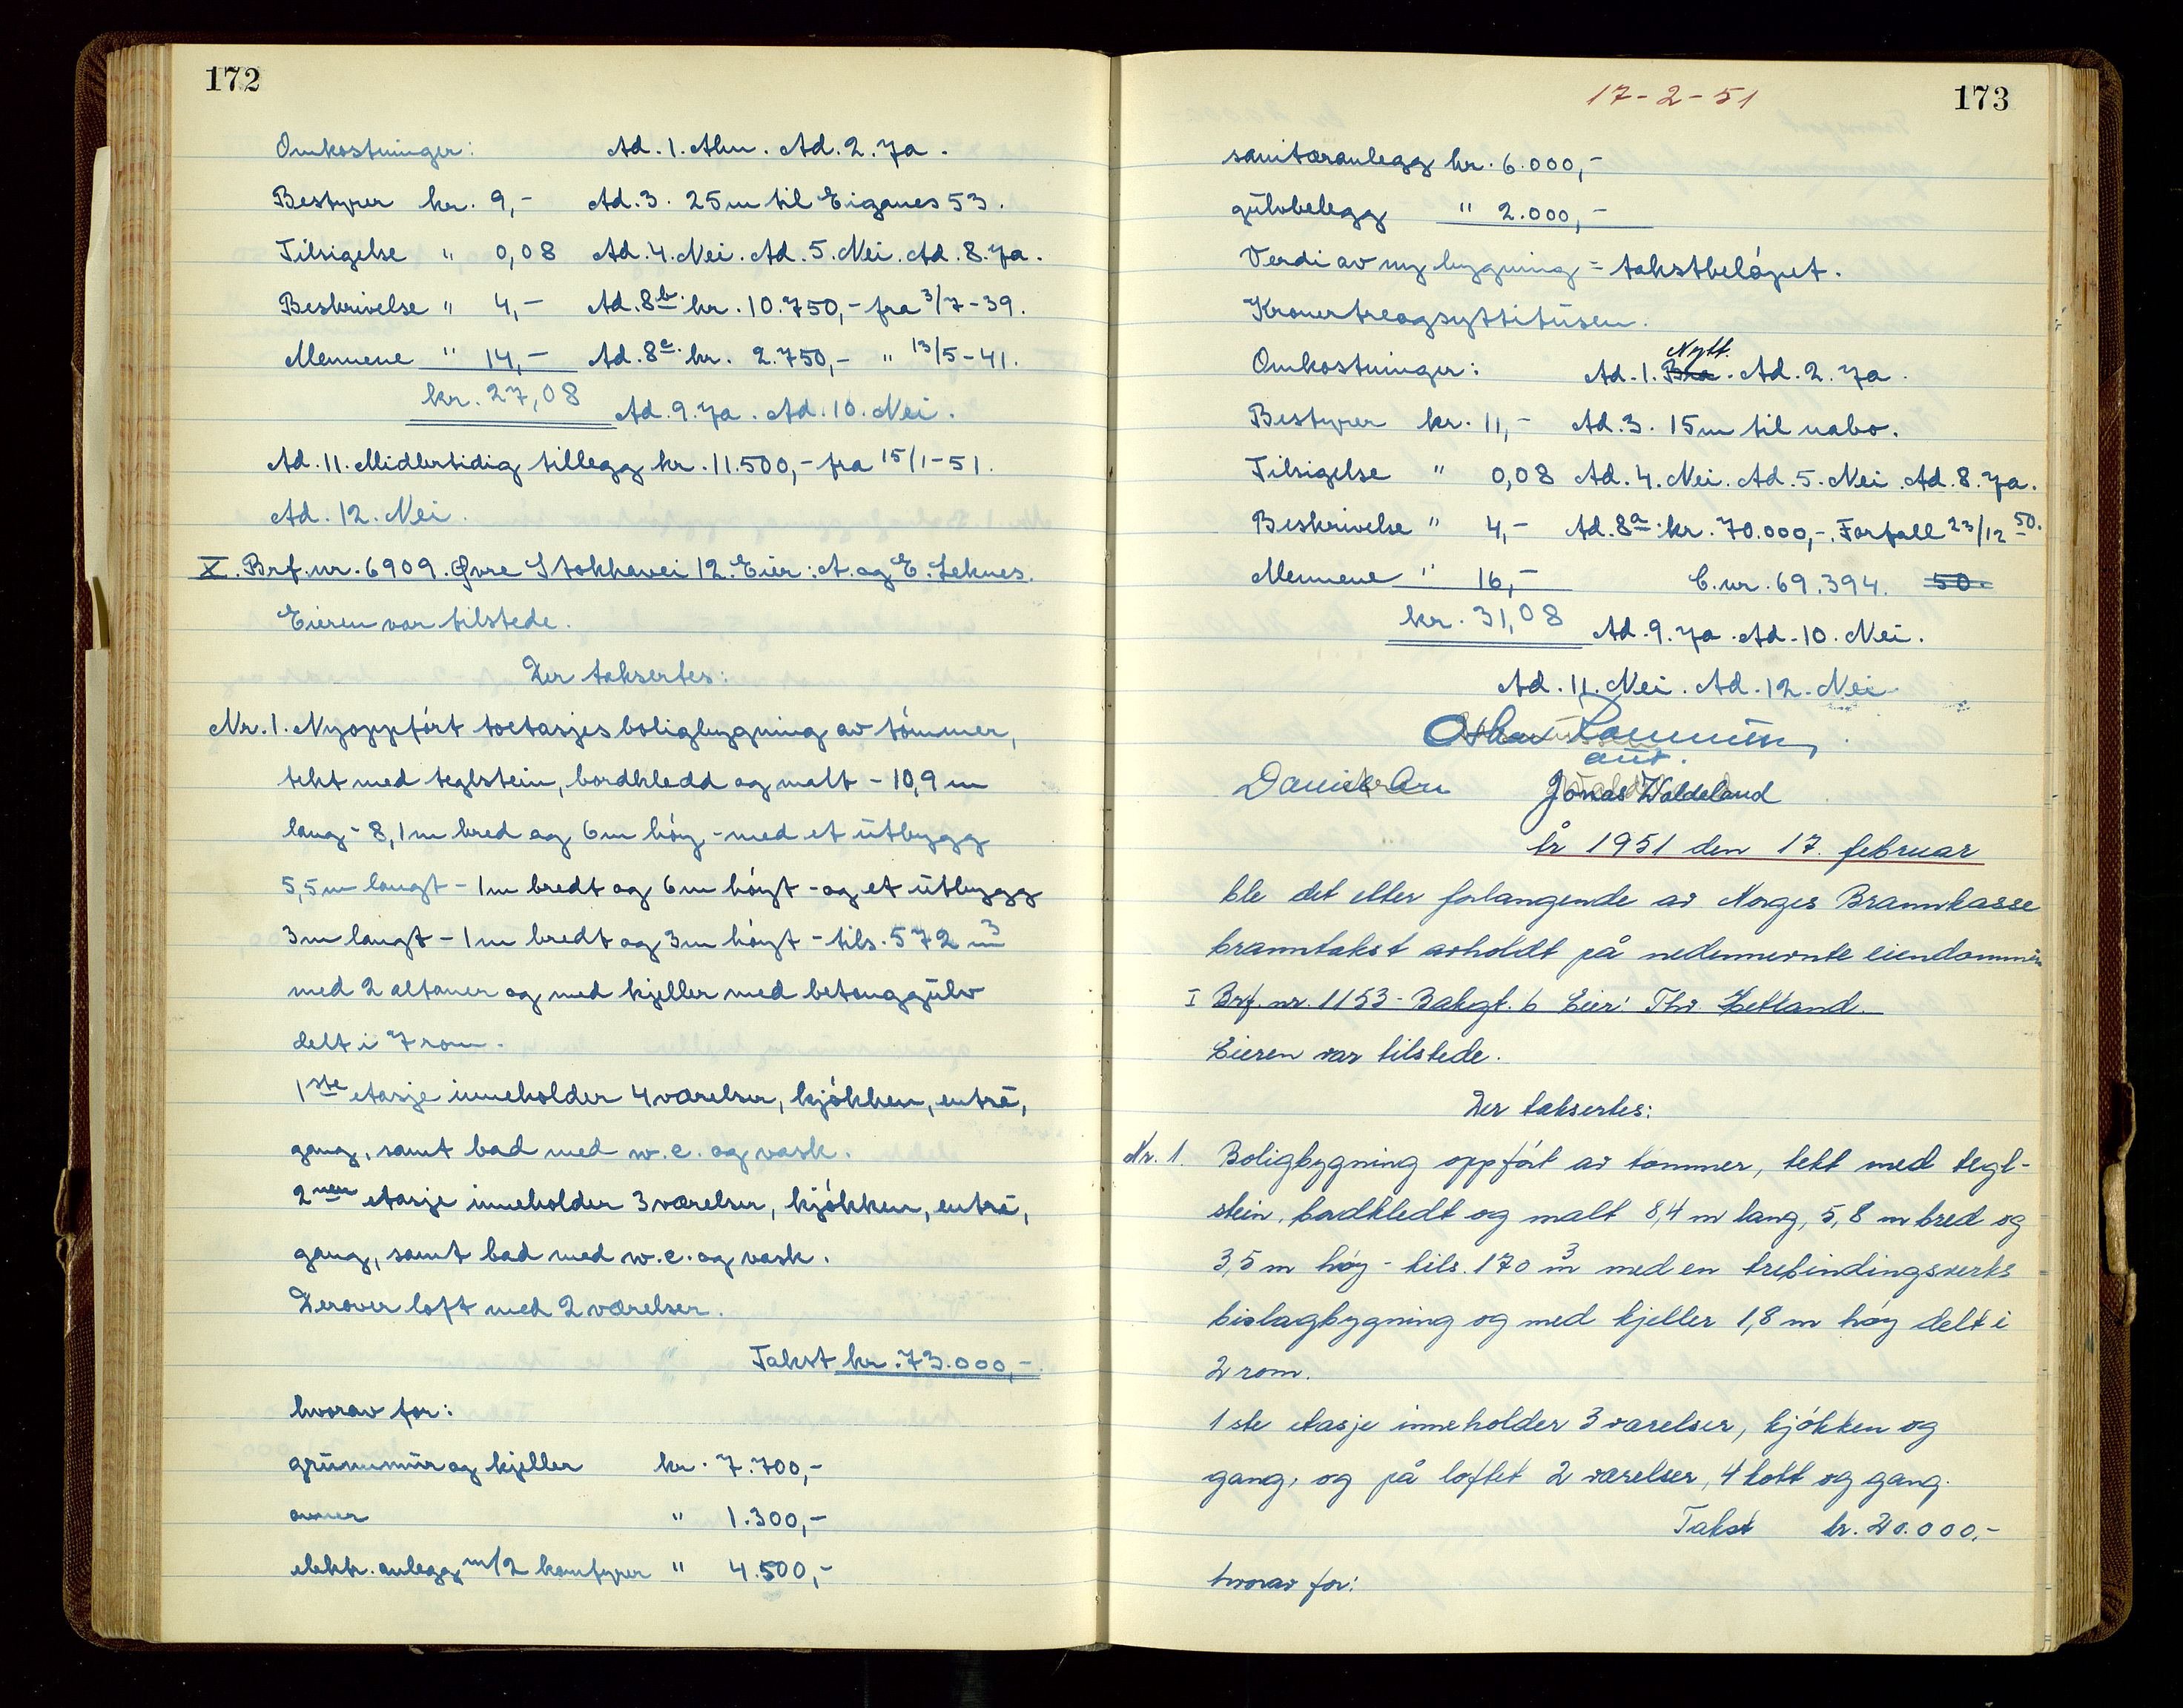 172
Omkostninger: Ad. 1. Alm. Ad. 2. Ja.
Bestyrer kr. 9,- Ad. 3. 25m til Eiganes 53.
Tilsigelse " 0,08 Ad. 4. Nei. Ad. 5. Nei. Ad. 8. Ja.
Beskrivelse " 4,- Ad. 8b. kr. 10.750,- fra 3/7-39.
Mennene " 14,- Ad. 8c. kr. 2.750,- " 13/5-41.
kr. 27,08 Ad. 9. Ja. Ad. 10. Nei.
Ad. 11. Midlertidig tillegg kr. 11.500,- fra 15/1-51.
Ad. 12. Nei.
X. Brf. nr. 6909. Øvre Stokkavei 12. Eier: A. og E. Leknes.
Eieren var tilstede.
Der taksertes:
Nr. 1. Nyoppført toetasjes boligbygning av tømmer,
tekt med teglstein, bordkledd og malt - 10,9 m
lang - 8,1 m bred og 6m høy, - med et utbygg
5,5m langt - 1m bredt og 6m høyt - og et utbygg
3m langt - 1m bredt og 3m høyt - tils. 572 m3
med 2 altaner og med kjeller med betonggulv
delt i 7 rom.
1ste etasje inneholder 4 værelser, kjøkken, entré,
gang, samt bad med w.c. og vask.
2nen etasje inneholder 3 værelser, kjøkken, entré,
gang, samt bad med w.c. og vask.
Derover loft med 2 værelser.
Takst kr. 73.000,-
hvorav for:
grunnmur og kjeller kr. 7.700,-
ovner " 1.300,-
elektr. anlegg m/2 komfyrer " 4.500,-
17-2-51
173
sanitæranlegg kr. 6.000,-
gulvbelegg " 2.000,-
Verdi av ny bygning = takstbeløpet.
Kronertreogsyttitusen.
Nytt.
Omkostninger: Ad. 1. Bra. Ad. 2. Ja.
Bestyrer kr. 11,- Ad. 3. 15m til nabo.
Tilsigelse " 0,08 Ad. 4. Nei. Ad. 5. Nei. Ad. 8. Ja.
Beskrivelse " 4,- Ad. 8a. kr. 70.000,-. Forfall 23/12-50.
Mennene " 16,- C. nr. 69.394. 50.
kr. 31,08 Ad. 9. Ja. Ad. 10. Nei.
Ad. 11. Nei. Ad. 12. Nei
aut.
Jonas Waldeland
År 1951 den 17. februar
ble det etter forlangende av Norges Brannkasse
branntakst avholdt på nedennevnte eiendommer
I Brf. nr. 1153 - Bakegt. 6 Eier: Thv. Hetland.
Eieren var tilstede.
Der taksertes:
Nr. 1. Boligbygning oppført av tømmer, tekt med tegl-
stein, bordkledt og malt 8,4 m lang, 5,8 m bred og
3,5 m høy - tils. 170 m3 med en trebindingsverks
bislagbygning og med kjeller 1,8 m høy delt i
2 rom.
1ste etasje inneholder 3 værelser, kjøkken og
gang, og på loftet 2 værelser, 4 kott og gang.
Takst kr. 20.000.-
hvorav for: